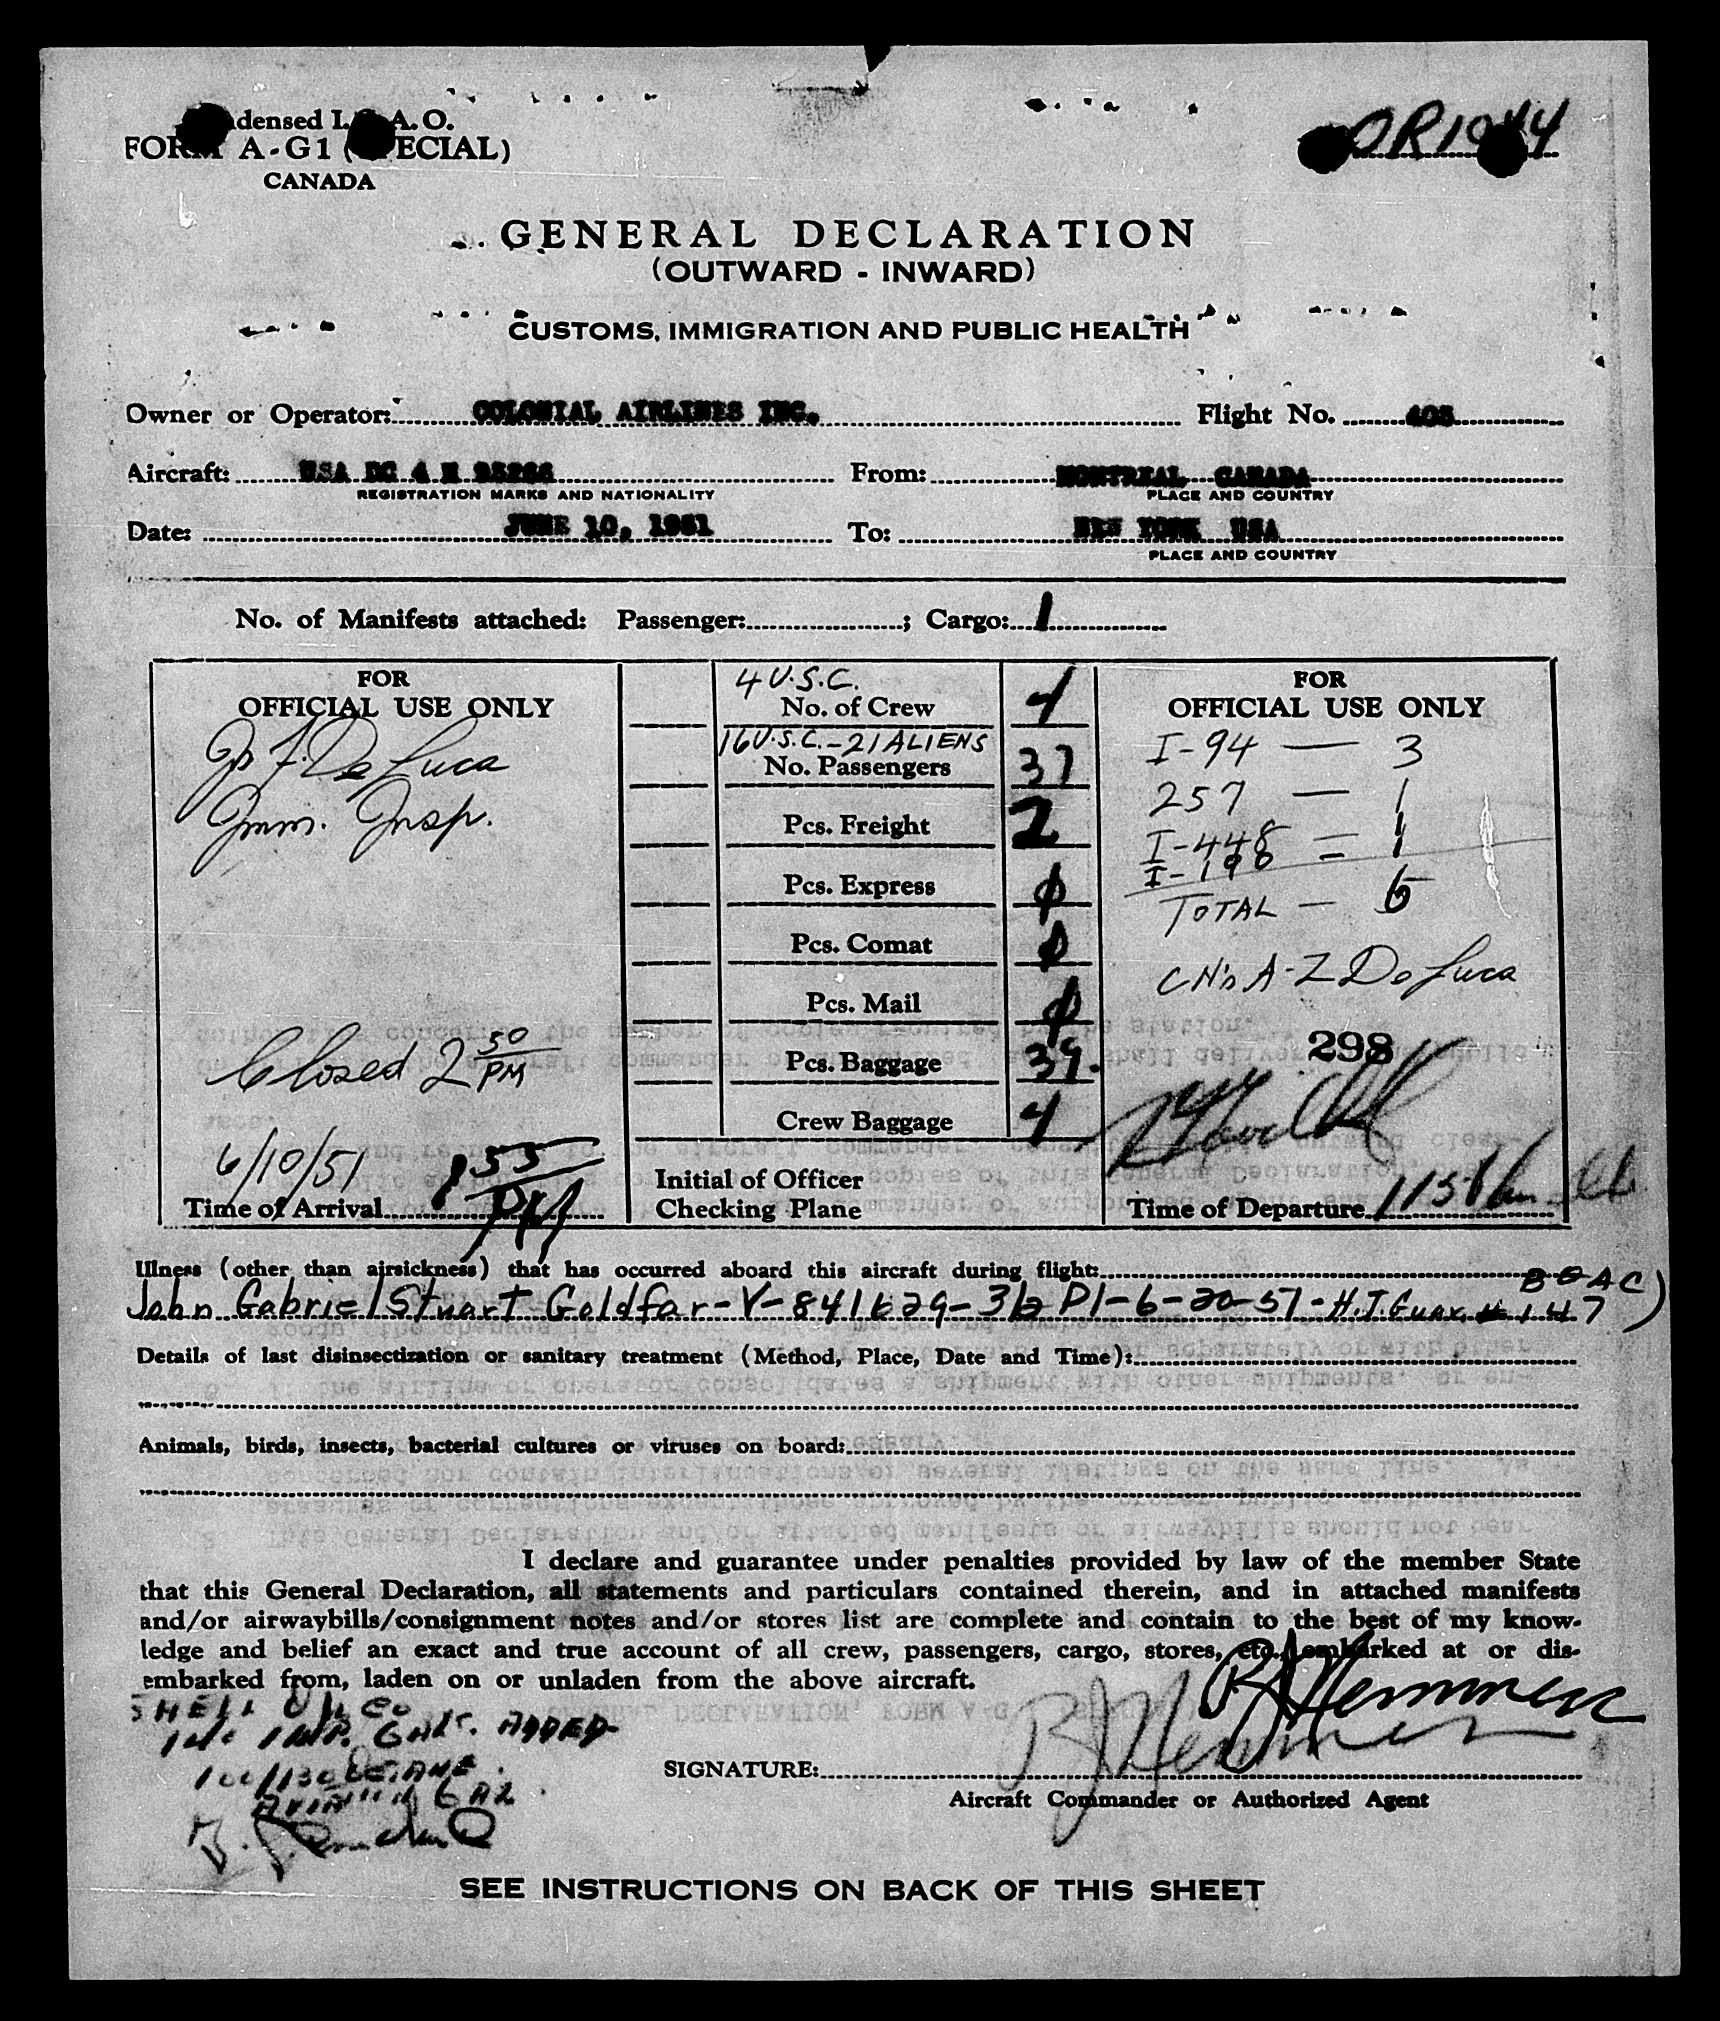 densed I. A. O.
FORM A-G1 (SPECIAL)
CANADA
OR1044
GENERAL DECLARATION
(OUTWARD - INWARD)
CUSTOMS, IMMIGRATION AND PUBLIC HEALTH
Owner or Operator: COLONIAL AIRLINES INC. Flight No. 405
Aircraft: USA DC 4 N From: MONTREAL CANADA
REGISTRATION MARKS AND NATIONALITY PLACE AND COUNTRY
Date: JUNE 10, 1951 To: NEW YORK USA
PLACE AND COUNTRY
No. of Manifests attached: Passenger: ; Cargo: 1
FOR
OFFICIAL USE ONLY
De Luca
Imm. Insp.
Closed 2 50 PM
6/10/51
Time of Arrival 1 55 PM
4 U.S.C.
No. of Crew 4
16 U.S.C. - 21 ALIENS
No. Passengers 37
Pcs. Freight 2
Pcs. Express 0
Pcs. Comat 0
Pcs. Mail 0
Pcs. Baggage 39.
Crew Baggage 4
Initial of Officer
Checking Plane
FOR
OFFICIAL USE ONLY
I-94 — 3
257 — 1
I-448 — 1
I-190 - 1
TOTAL — 6
CN's A-Z De Luca
298
Time of Departure
Illness (other than airsickness) that has occurred aboard this aircraft during flight:
John Gabriel Stuart Goldfar-V-841629-3(2 P1-6-20-51-H.J. 147
Details of last disinsectization or sanitary treatment (Method, Place, Date and Time):
Animals, birds, insects, bacterial cultures or viruses on board:
I declare and guarantee under penalties provided by law of the member State
that this General Declaration, all statements and particulars contained therein, and in attached manifests
and/or airwaybills/consignment notes and/or stores list are complete and contain to the best of my know-
ledge and belief an exact and true account of all crew, passengers, cargo, stores, etc., embarked at or dis-
embarked from, laden on or unladen from the above aircraft.
SHELL OIL CO
IMP. GALS. ADDED
100/130 OCTANE
SIGNATURE: B J Hemmen
Aircraft Commander or Authorized Agent
SEE INSTRUCTIONS ON BACK OF THIS SHEET